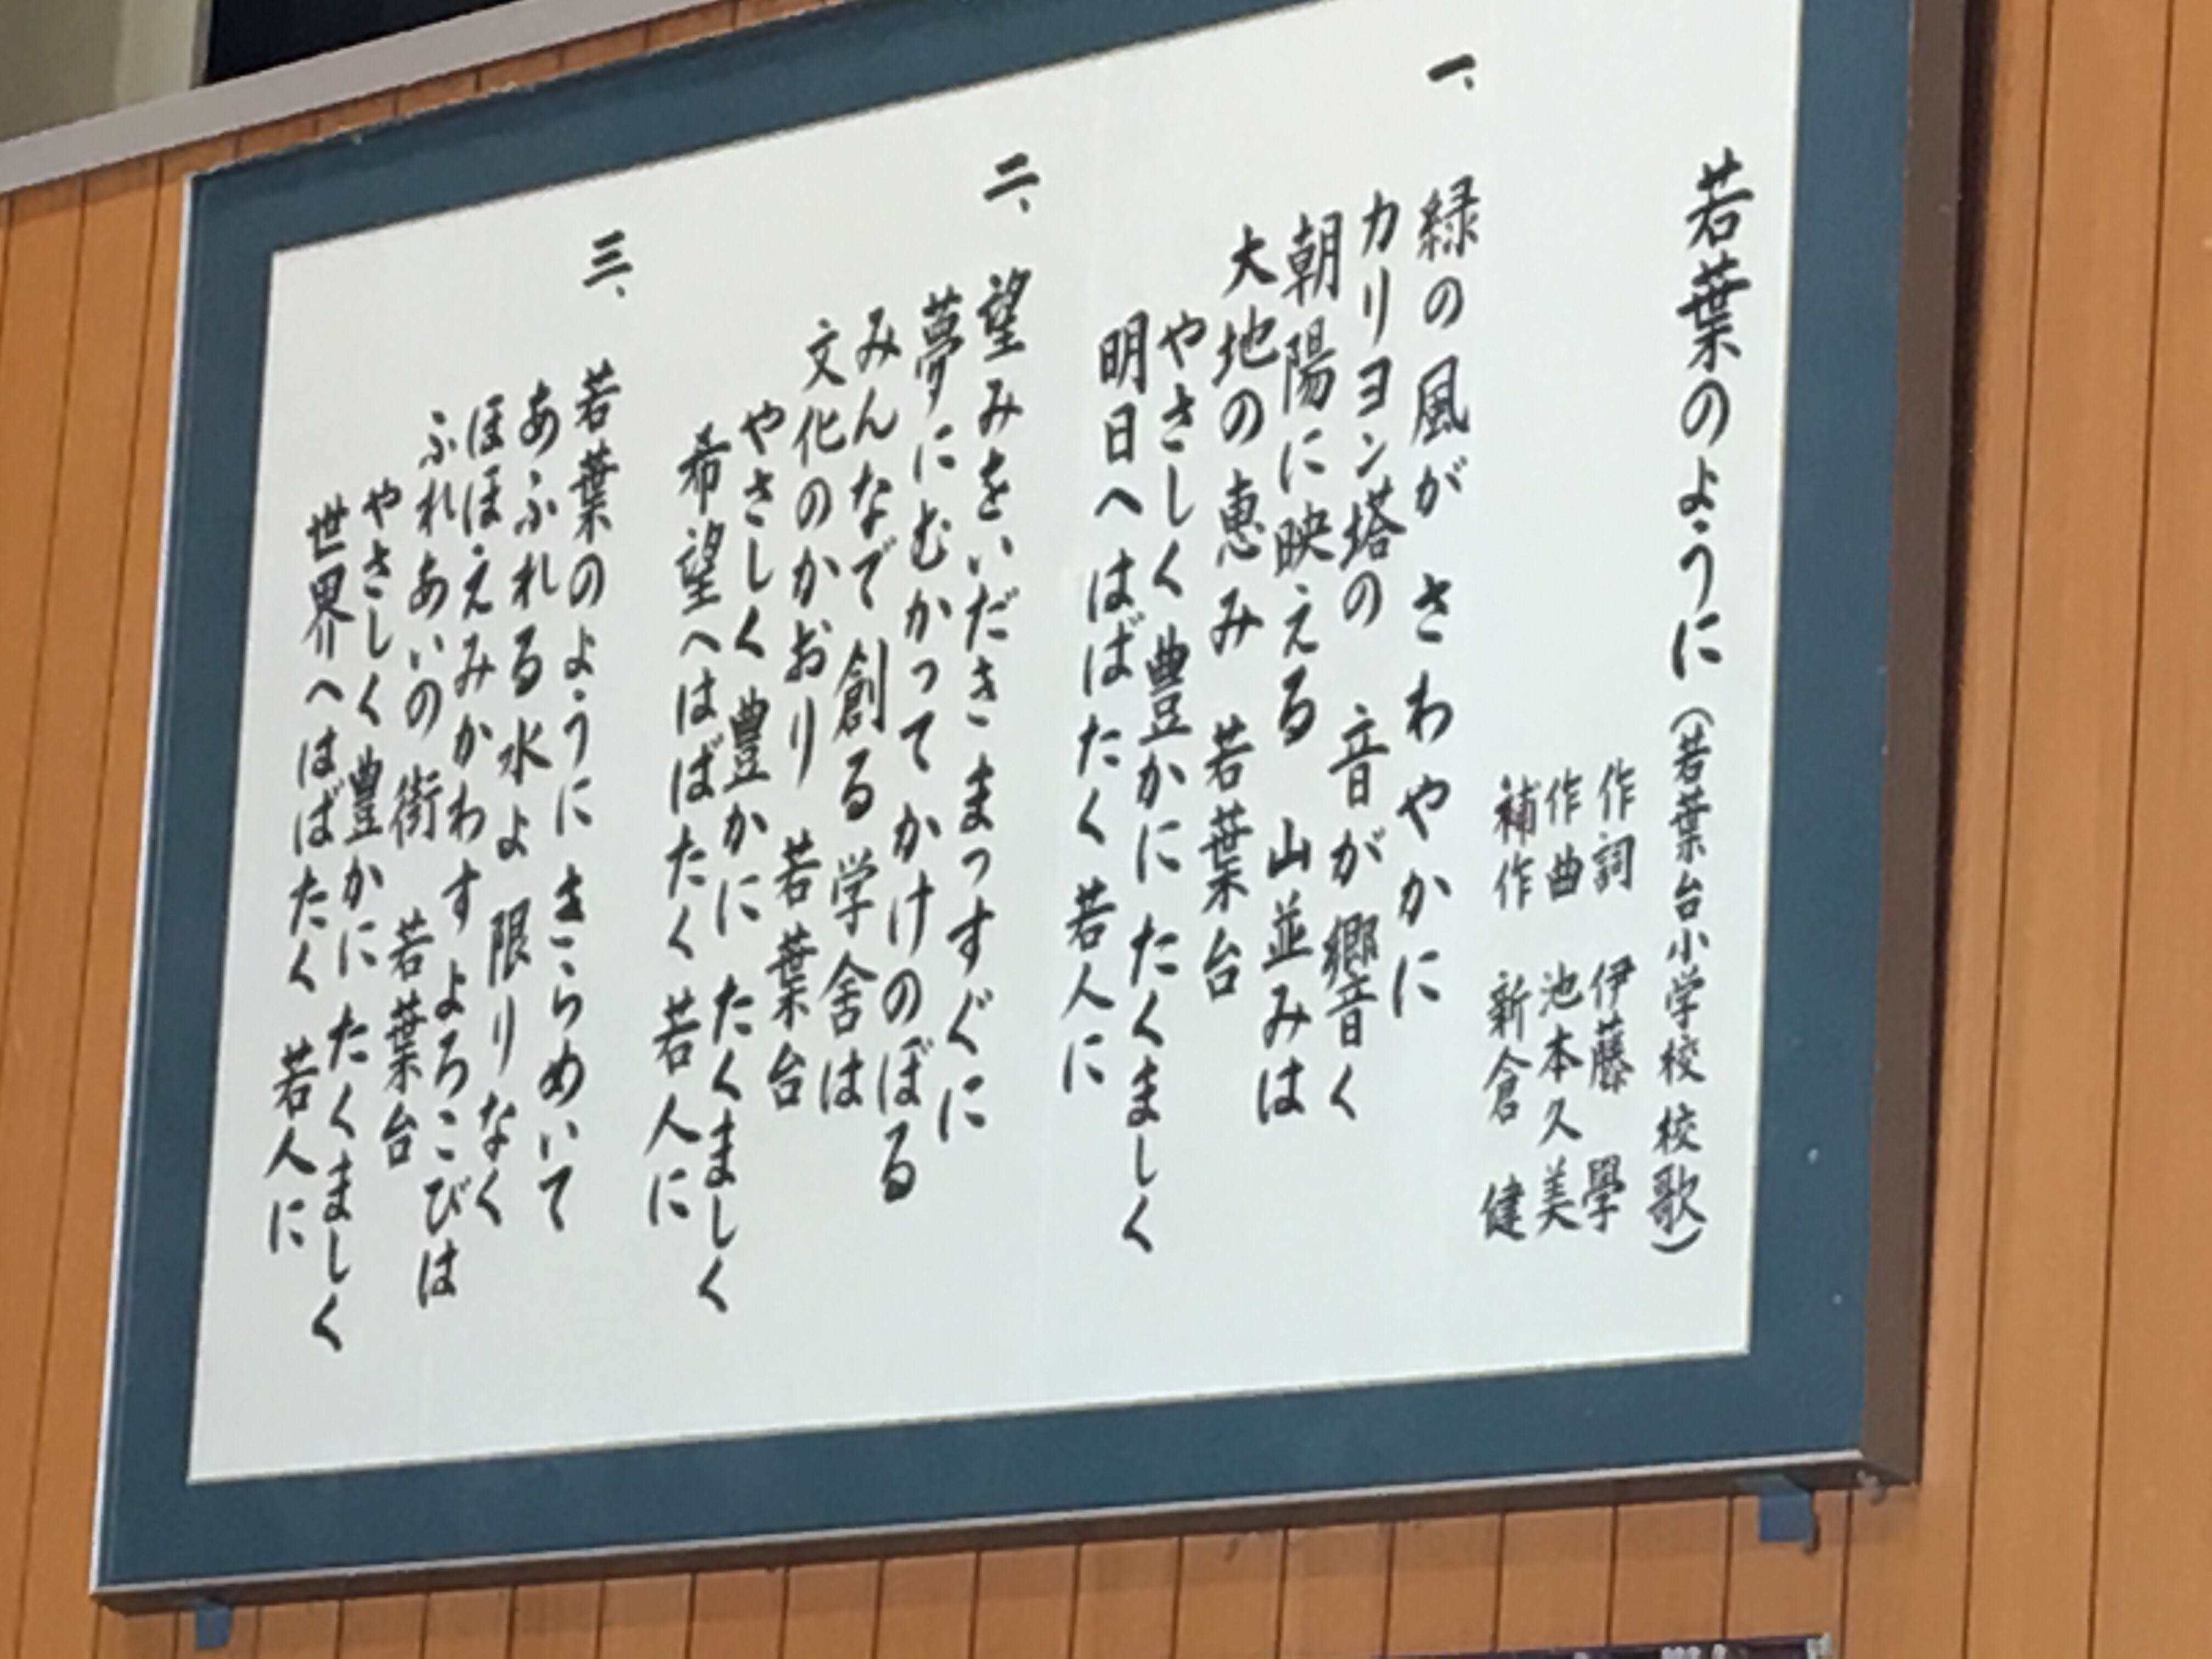 若葉のように（若葉台小学校 校歌）
作詞 伊藤 學
作曲 池本久美
補作 新倉 健
一、緑の風が さわやかに
カリヨン塔の 音が響く
朝陽に映える 山並みは
大地の恵み 若葉台
やさしく豊かに たくましく
明日へはばたく 若人に
二、望みをいだき まっすぐに
夢にむかって かけのぼる
みんなで創る 学舎は
文化のかおり 若葉台
やさしく豊かに たくましく
希望へはばたく 若人に
三、若葉のように きらめいて
あふれる水よ 限りなく
ほほえみかわす よろこびは
ふれあいの街 若葉台
やさしく豊かに たくましく
世界へはばたく 若人に